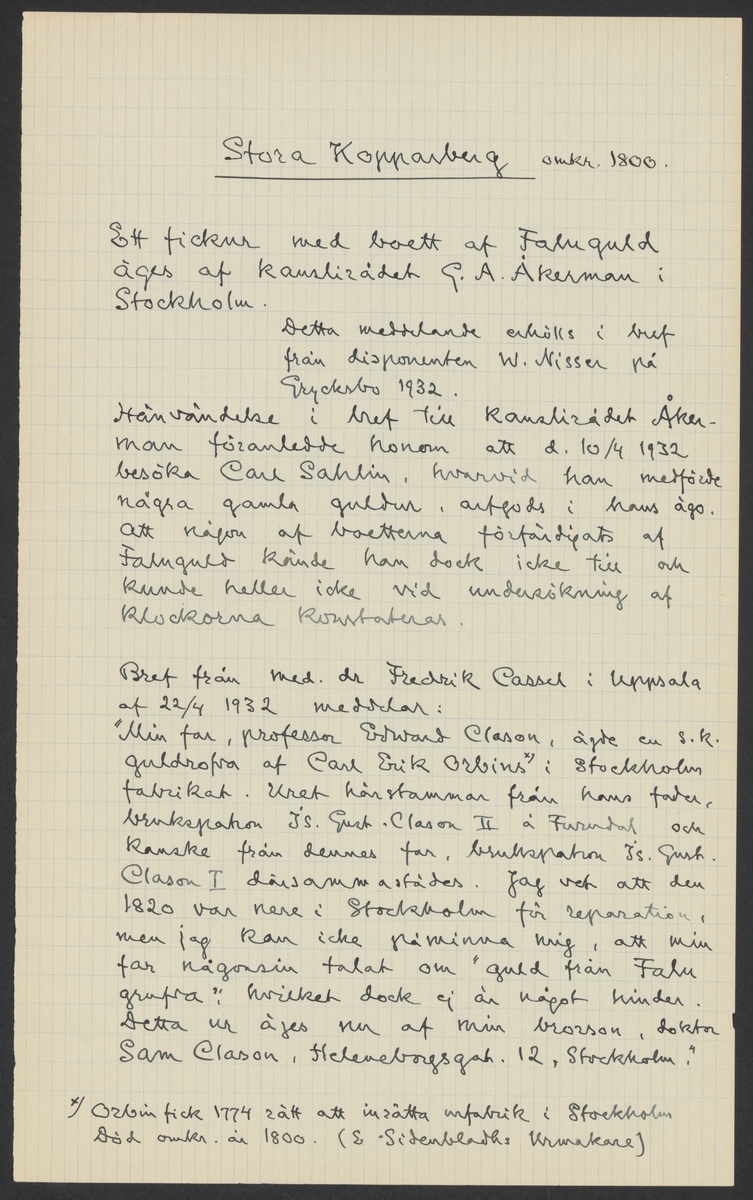 Stora Kopparberg omkr. 1800.
Ett fickur med boett af Faluguld
äges af kanslirådet G. A. Åkerman i
Stockholm.
Detta meddelande erhölls i bref
från disponenten W. Nisser på
Grycksbo 1932.
Hänvändelse i bref till kanslirådet Åker-
man föranledde honom att d. 10/4 1932
besöka Carl Sahlin, hvarvid han medförde
några gamla guldur, arfgods i hans ägo.
Att någon af boetterna förfärdigats af
Faluguld kände han dock icke till och
kunde heller icke vid undersökning af
klockorna konstateras.
Bref från med. dr Fredrik Cassel i Uppsala
af 22/4 1932 meddelar:
"Min far, professor Edward Clason, ägde en s.k.
guldrofva af Carl Erik Orbins x) i Stockholm
fabrikat. Uret härstammar från hans fader,
brukspatron Is. Gust. Clason II å Furudal och
kanske från dennes far, brukspatron Is. Gust.
Clason I därsammastädes. Jag vet att den
1820 var nere i Stockholm för reparation,
men jag kan icke påminna mig, att min
far någonsin talat om "guld från Falu
grufva", hvilket dock ej är något hinder.
Detta ur äges nu af min brorson, doktor
Sam Clason, Heleneborgsgat. 12, Stockholm."
x) Orbin fick 1774 rätt att inrätta urfabrik i Stockholm
Död omkr. år 1800. (E Sidenbladhs Urmakare)